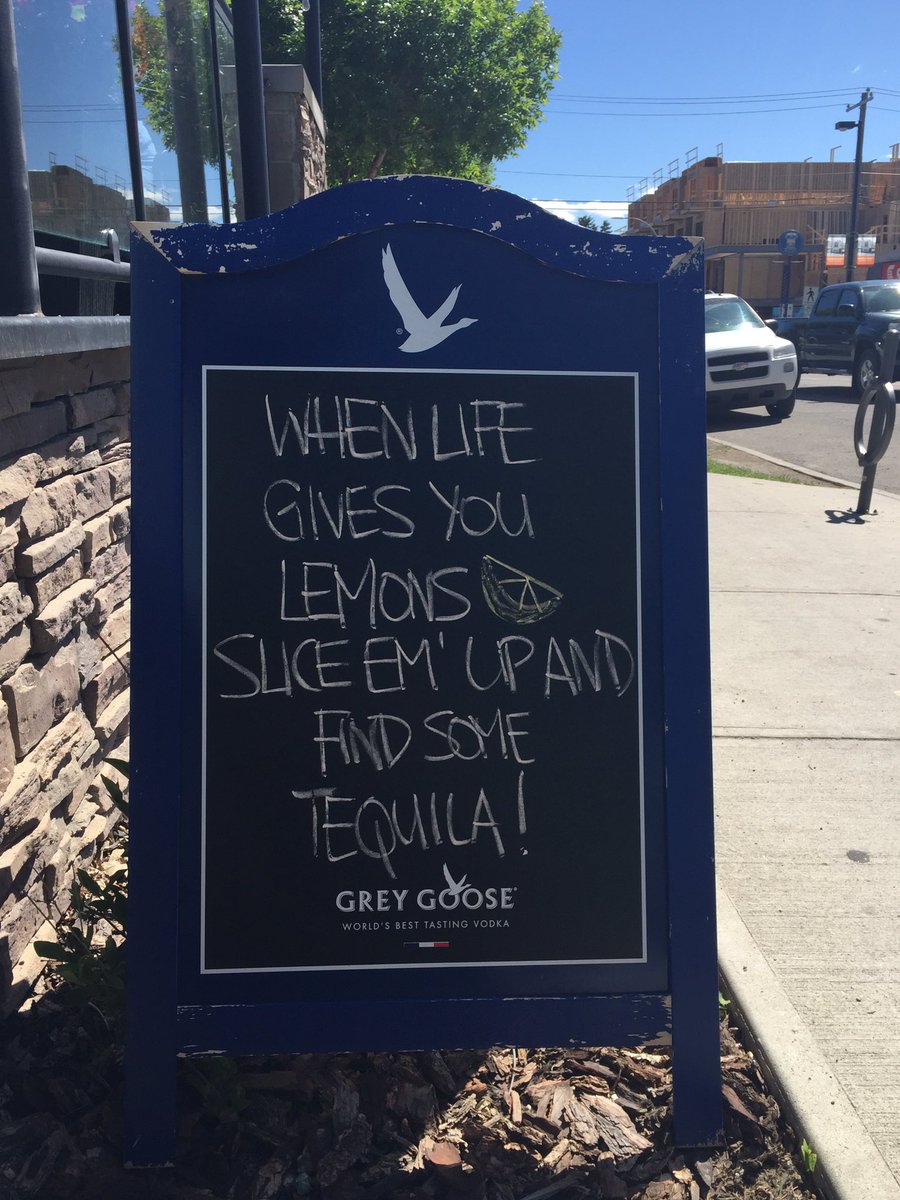 WHEN LIFE
GIVES YOU
LEMONS
SLICE EM' UP AND
FIND SOME
TEQUILA!
GREY GOOSE®
WORLD'S BEST TASTING VODKA